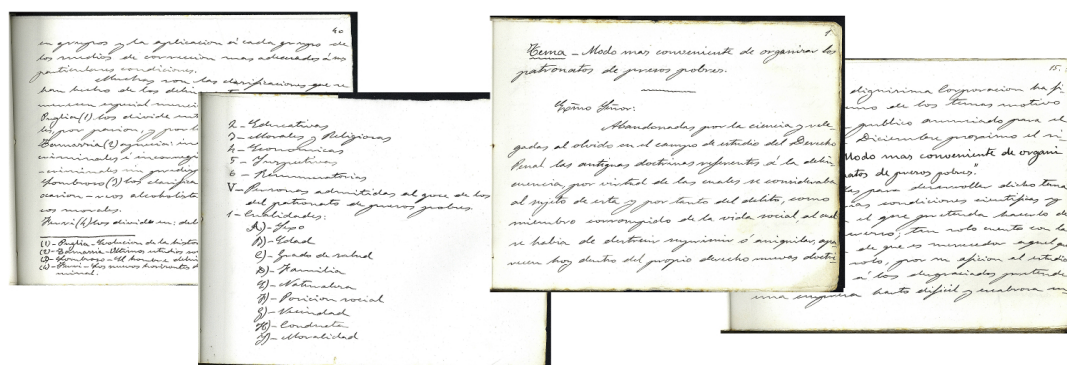 40
en grupos y la aplicacion á cada grupo de
los medios de correccion mas adecuados á sus
particulares condiciones.
Muchas son las clasificaciones que se
han hecho de los delin
merecen especial menci
Puglia (1) los divide ent
les por pasion, y por h
criminales é incorregi
Lombroso (3) los clasifica
casion - reos alcoholista
cos morales.
Ferri (4) los divide en: del
(1) - Puglia - Evolucion de la histor
(3) - Lombroso - El hombre delin
(4) - Ferri - Los nuevos horizontes d
minal.
2 - Educativas
3 - Morales y Religiosas
4 - Economicas
5 - Juridicas
6 - Remuneratorias
V - Personas admitidas al goce de los
del patronato de presos pobres.
1 - Cualidades:
A) - Sexo
B) - Edad
C) - Grado de salud
D) - Familia
E) - Naturaleza
F) - Posicion social
G) - Vecindad
H) - Conducta
I) - Moralidad
1
Tema - Modo mas conveniente de organizar los
patronatos de presos pobres.
Exmo Señor:
Abandonadas por la ciencia y rele-
gadas al olvido en el campo de estudio del Derecho
Penal las antiguas doctrinas referentes á la delin
cuencia por virtud de las cuales se consideraba
al sujeto de esta y por tanto del delito, como
miembro corrompido de la vida social al cual
se habia de destruir suprimir ó aniquilar, apa
recen hoy dentro del propio derecho nuevas doctri
15.
dignisima Corporacion ha fi
uno de los temas motivo
publico anunciado para el
Diciembre proximo el si
Modo mas conveniente de organi
natos de presos pobres."
las para desarrollar dicho tema
condiciones cientificas y
el que pretenda hacerlo de
tan solo cuento con la
de que es merecedor aquel que
solo, por su aficion al estudio
á los desgraciados pretende
una empresa harto dificil y escabrosa